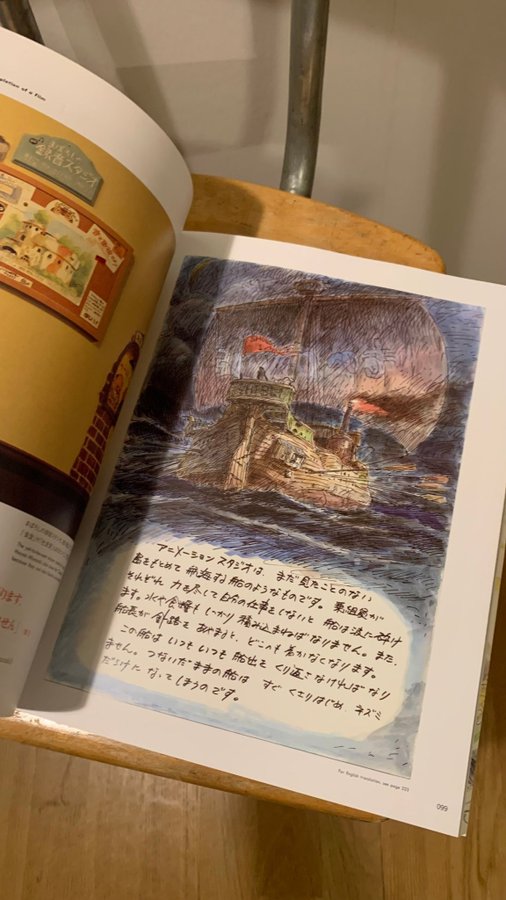 pletion of a film
録音スタジオ
アニメーション スタジオは、まだ見たことのない
島をもとめて 航海する 船のようなものです。乗組員が
それぞれ 力を尽して自分の仕事をしないと 船は波に砕け
ます。水や食糧もしっかり積み込まねばなりません。また、
船長が 針路を あやまると、どこへも 着かなくなります。
この船は いつも いつも 船出を くり返さなければなり
ません。つないだままの船は すぐ くさりはじめ、ネズミ
だらけに なって しまうのです。
For English translation, see page
099